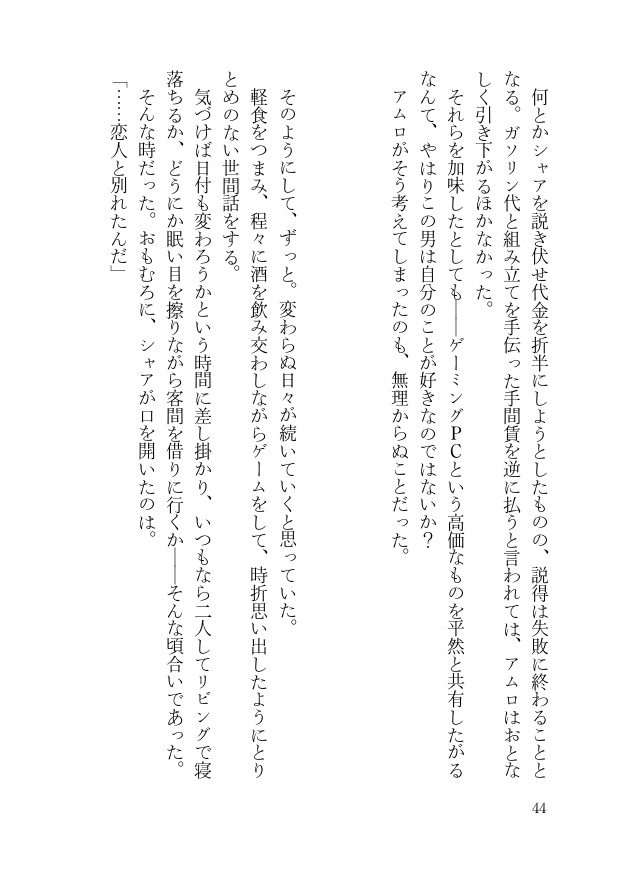 何とかシャアを説き伏せ代金を折半にしようとしたものの、説得は失敗に終わることと
なる。ガソリン代と組み立てを手伝った手間賃を逆に払うと言われては、アムロはおとな
しく引き下がるほかなかった。
それらを加味したとしても――ゲーミングPCという高価なものを平然と共有したがる
なんて、やはりこの男は自分のことが好きなのではないか？
アムロがそう考えてしまったのも、無理からぬことだった。
そのようにして、ずっと。変わらぬ日々が続いていくと思っていた。
軽食をつまみ、程々に酒を飲み交わしながらゲームをして、時折思い出したようにとり
とめのない世間話をする。
気づけば日付も変わろうかという時間に差し掛かり、いつもなら二人してリビングで寝
落ちるか、どうにか眠い目を擦りながら客間を借りに行くか――そんな頃合いであった。
そんな時だった。おもむろに、シャアが口を開いたのは。
「……恋人と別れたんだ」
44